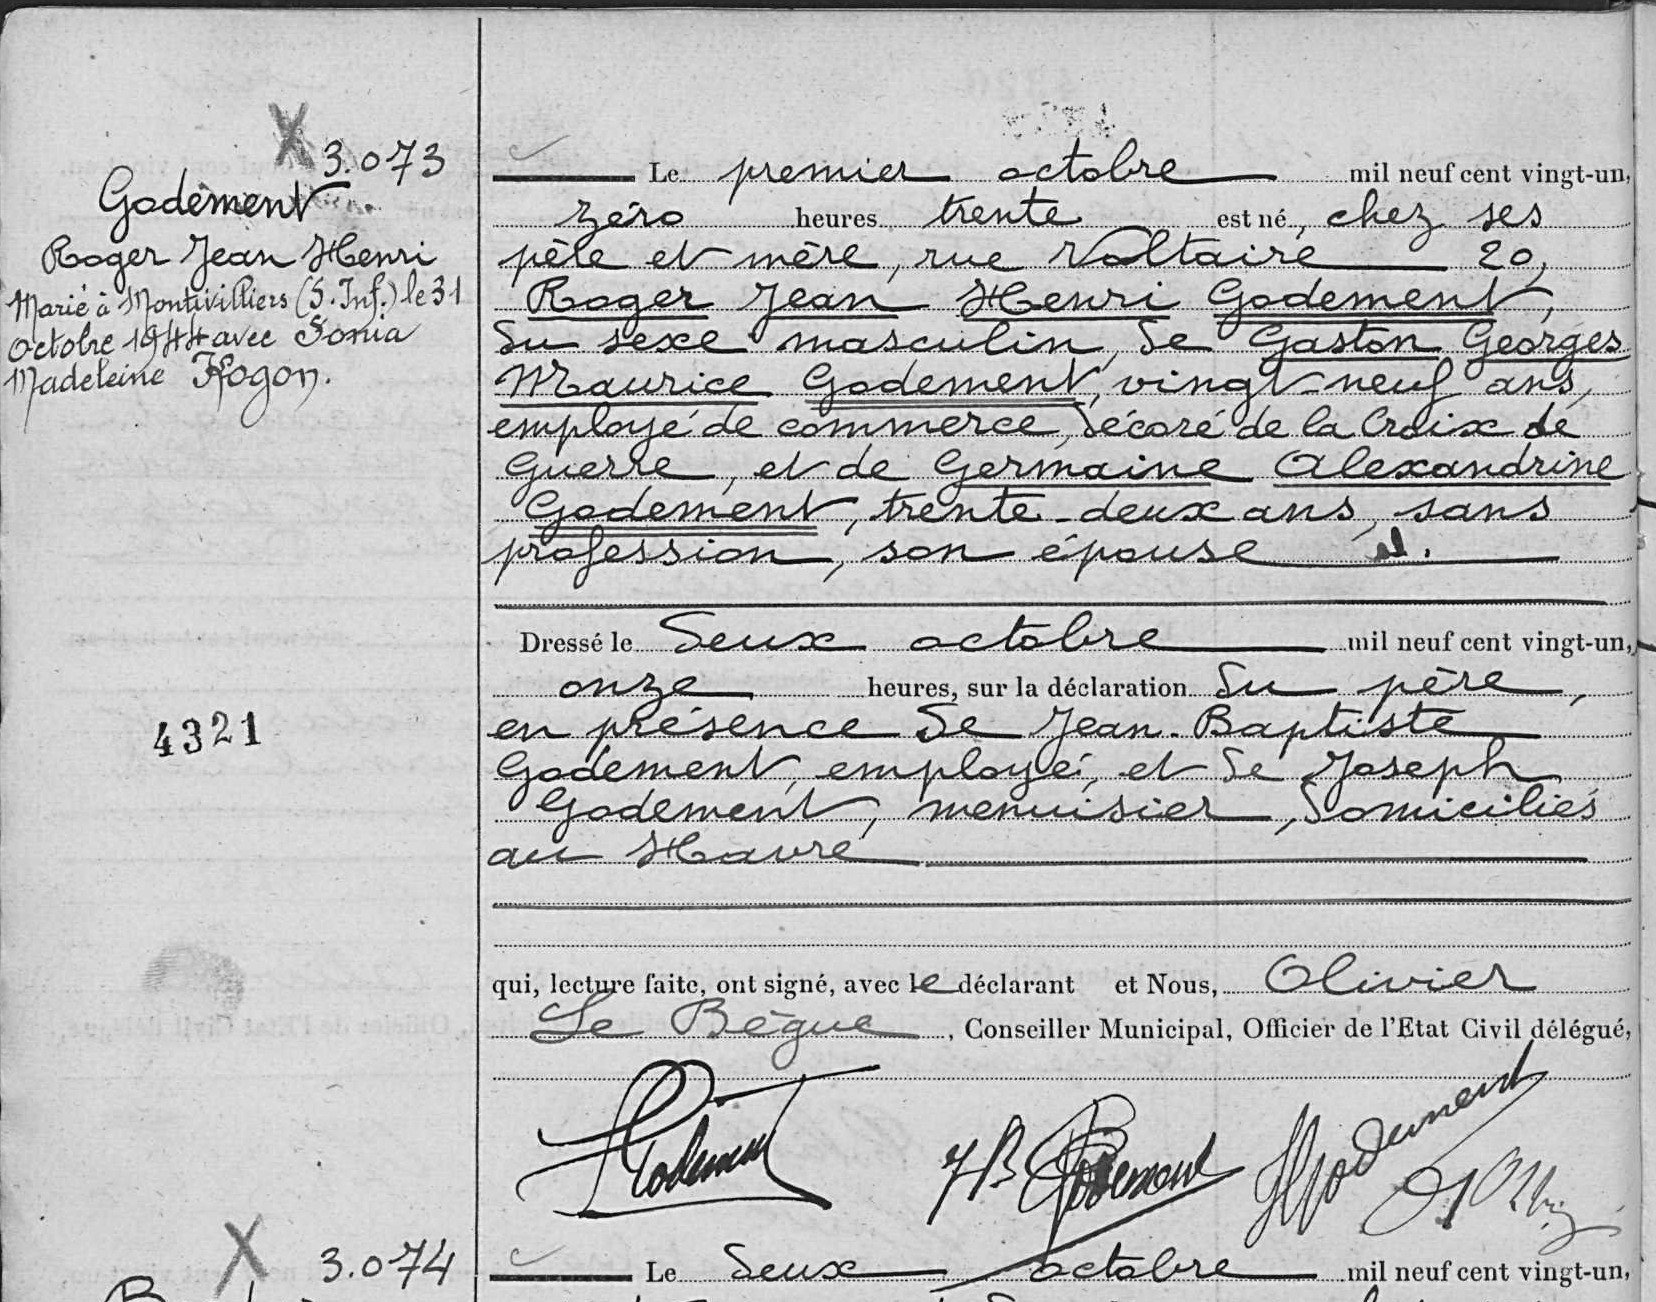 3.073
Godement
Roger Jean Henri
Marié à Montivilliers (S. Inf.) le 31
octobre 1944 avec Sonia
Madeleine Kogon.
4321
Le premier octobre mil neuf cent vingt-un,
zéro heures trente est né, chez ses
père et mère, rue Voltaire 20,
Roger Jean Henri Godement,
du sexe masculin, de Gaston Georges
Maurice Godement, vingt-neuf ans,
employé de commerce, décoré de la Croix de
Guerre, et de Germaine Alexandrine
Godement, trente-deux ans, sans
profession, son épouse
Dressé le deux octobre mil neuf cent vingt-un,
onze heures, sur la déclaration du père,
en présence de Jean-Baptiste
Godement, employé, et de Joseph
Godement, menuisier, domiciliés
au Havre
qui, lecture faite, ont signé, avec le déclarant et Nous, Olivier
Le Bègue, Conseiller Municipal, Officier de l'Etat Civil délégué,
Godement JB Godement Godement
3.074
Le deux octobre mil neuf cent vingt-un,